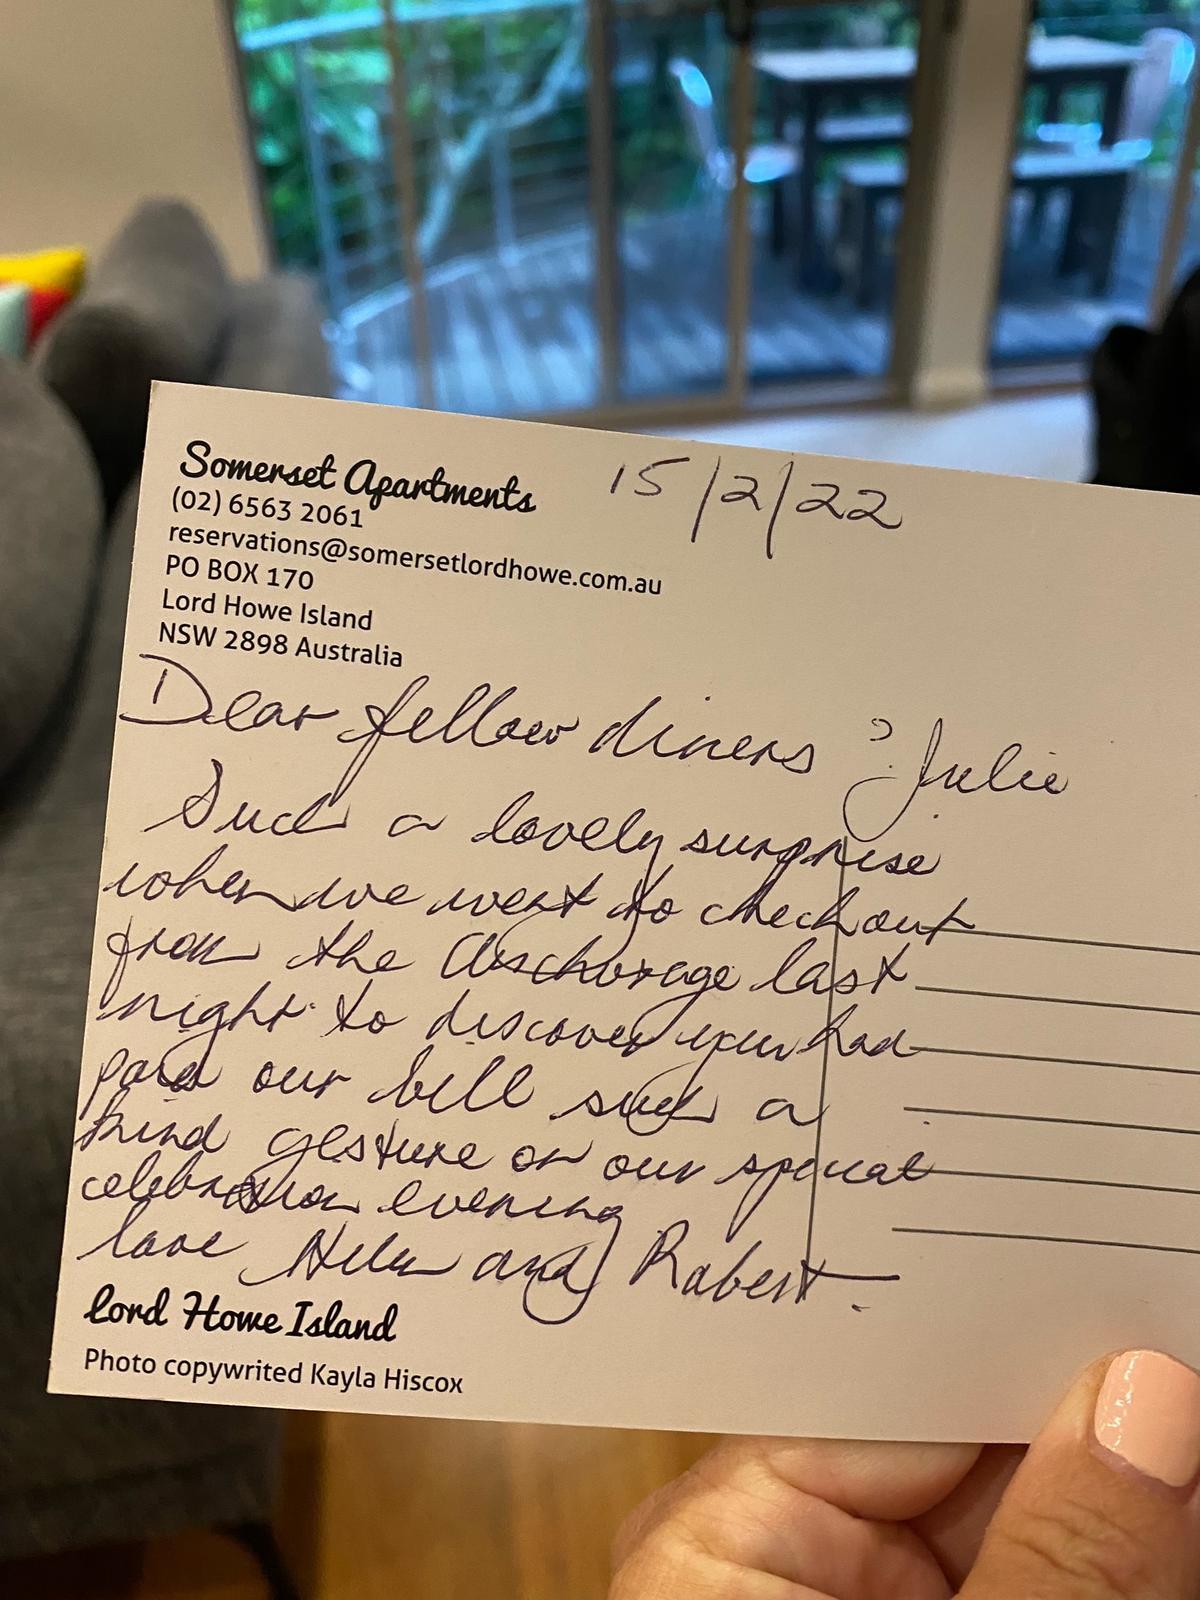 Somerset Apartments
15/2/22
(02) 6563 2061
reservations@somersetlordhowe.com.au
PO BOX 170
Lord Howe Island
NSW 2898 Australia
Dear fellow diners ? Julie
Such a lovely surprise
when we went to check out
from the Anchorage last
night to discover you had
paid our bill such a
kind gesture on our special
celebration evening
love Helen and Robert.
Lord Howe Island
Photo copywrited Kayla Hiscox